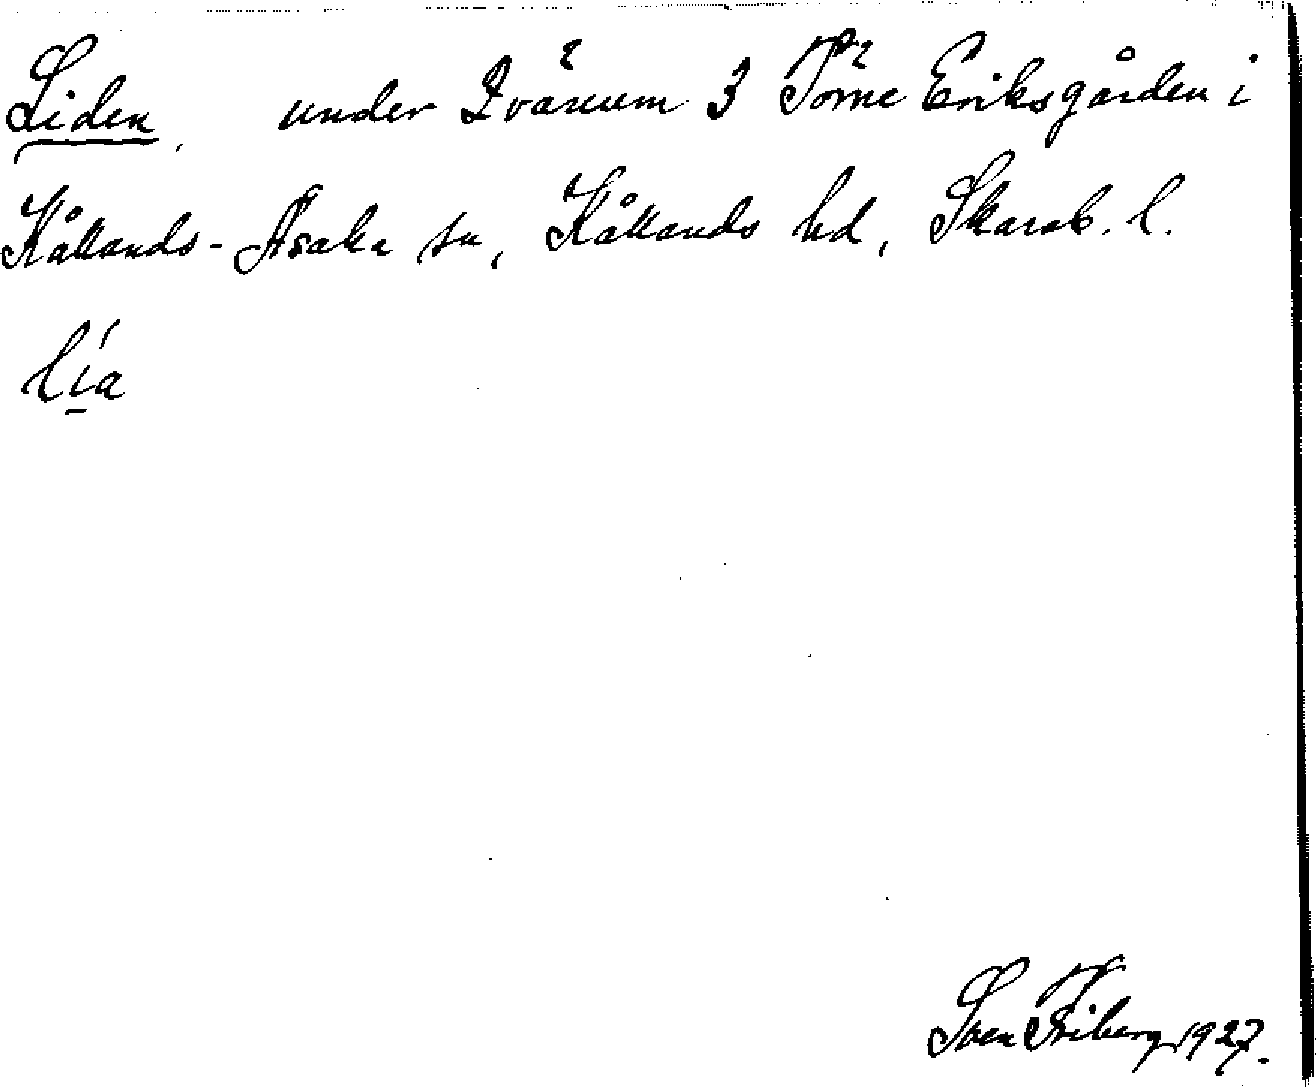 Liden, under Dvärum 3 Törne Eriksgården i
Kållands-Åsaka sn, Kållands hd, Skarab. l.
lia
Sven Friberg 1927.